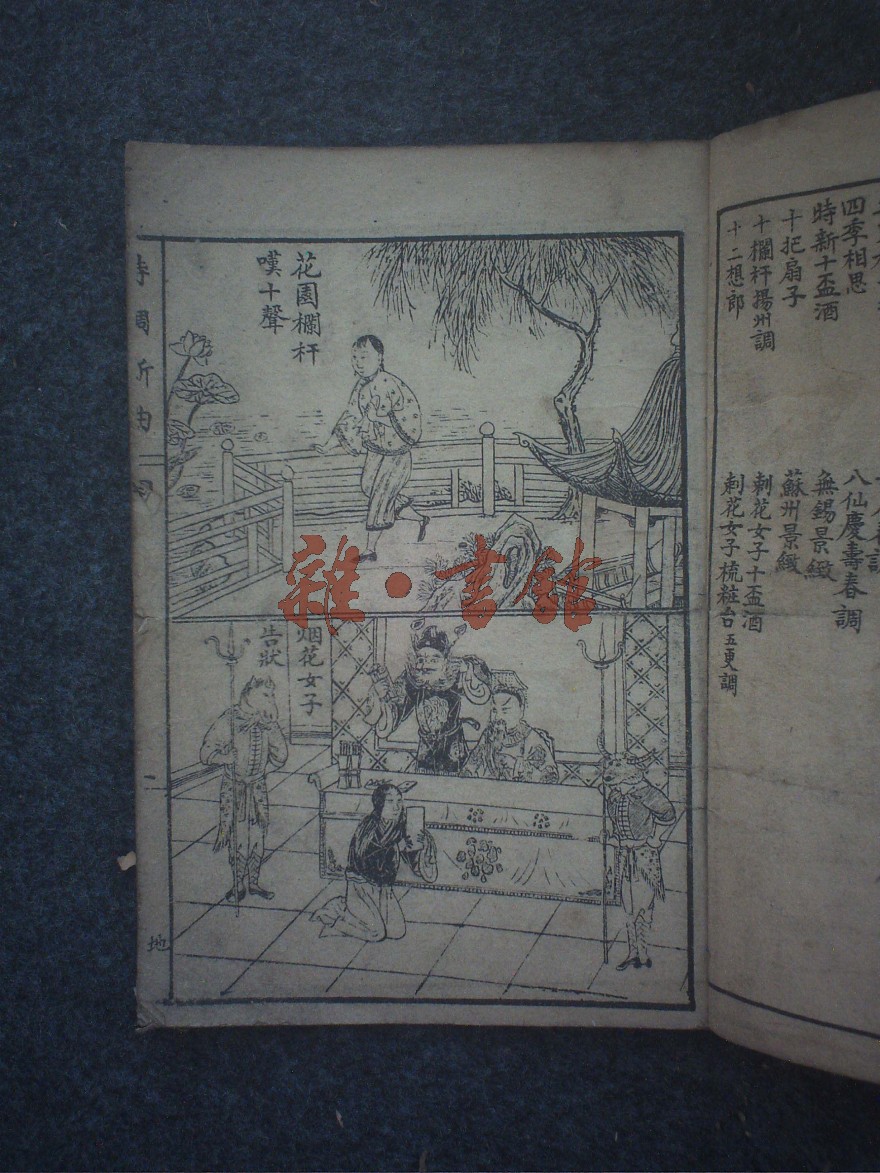 四季相思
時新十盃酒
十把扇子
十欄杆揚州調
十二想郎
八仙慶壽春調
無錫景緻
蘇州景緻
刺花女子十盃酒
刺花女子梳粧台五更調
花園欄杆
嘆十聲
烟花女子
告狀
地
雜·書館